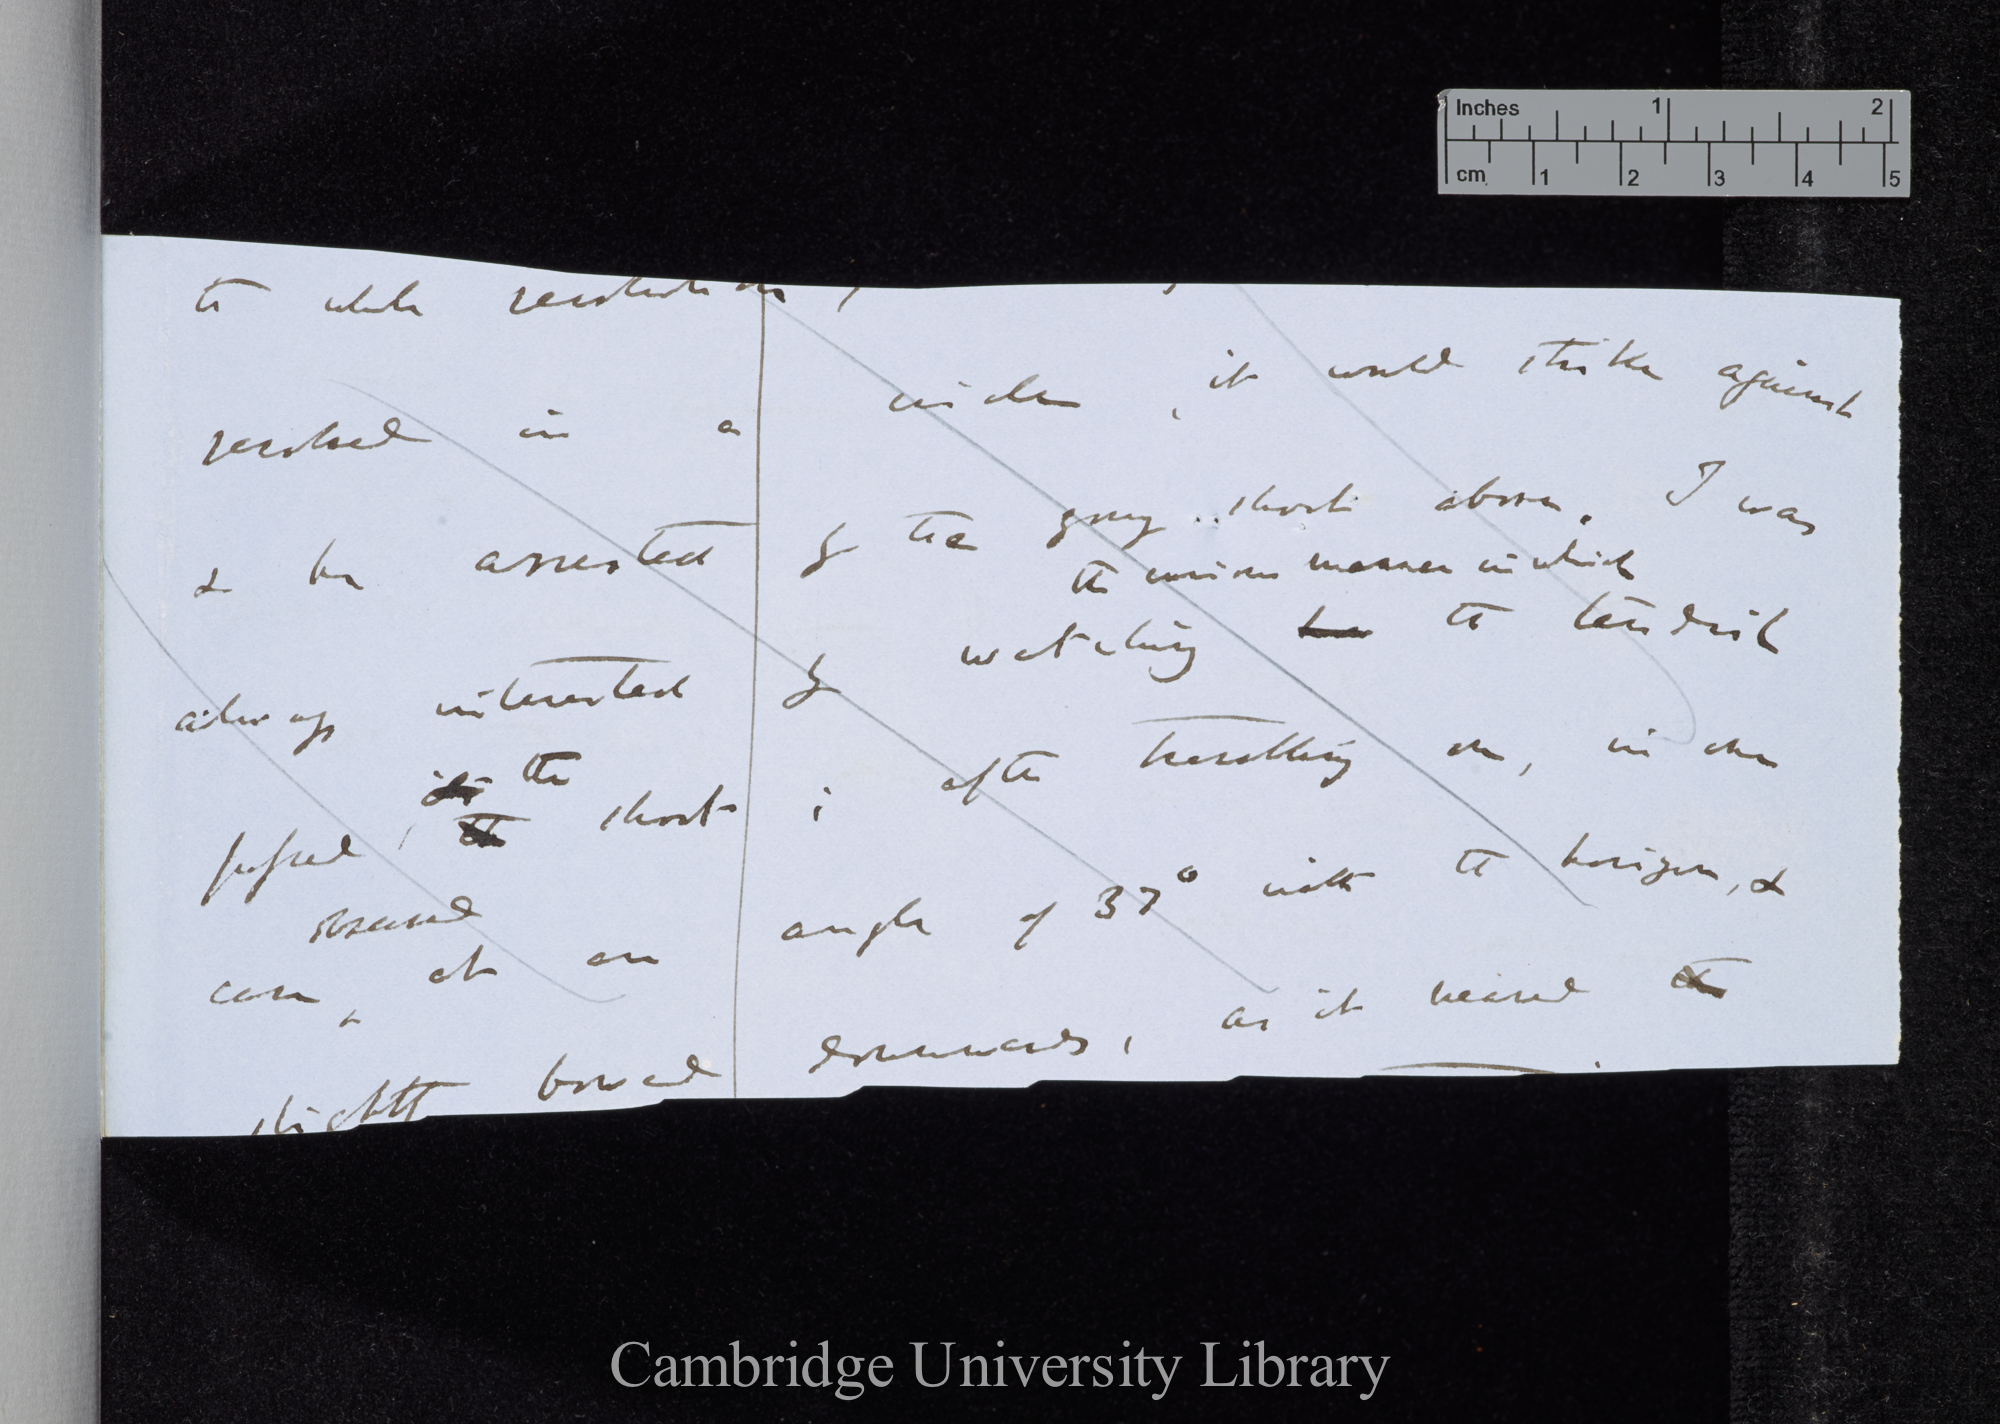 Inches 1 2
cm 1 2 3 4 5
the whole revolution
revolved in a circle, it would strike against
& be arrested by the young shoots above. I was
the curious manner in which
always interested by watching the tendril
the
passed the shoot; after travelling on, in one
several
case, at an angle of 37° with the horizon, &
slightly bowed downwards, as it neared the
Cambridge University Library